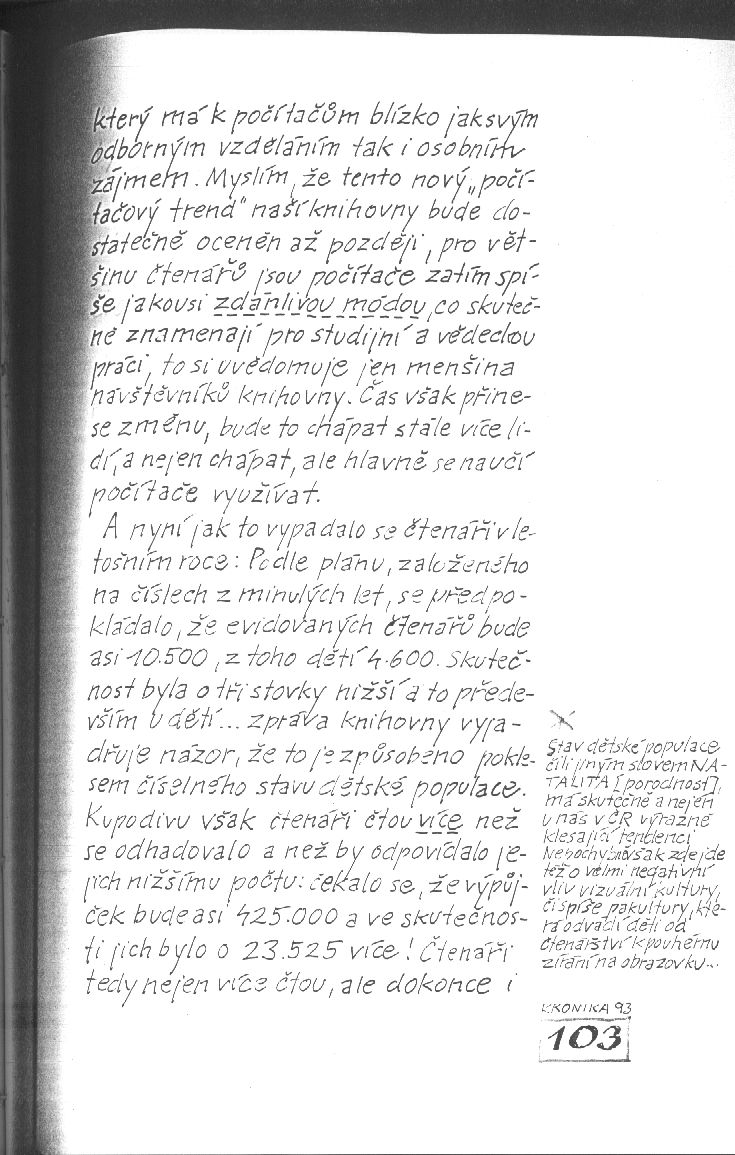 který má k počítačům blízko jak svým
odborným vzděláním tak i osobním
zájmem. Myslím, že tento nový „počí-
tačový trend" naší knihovny bude do-
statečně oceněn až později, pro vět-
šinu čtenářů jsou počítače zatím spí-
še jakousi zdánlivou módou, co skuteč-
ně znamenají pro studijní a vědeckou
práci, to si uvědomuje jen menšina
návštěvníků knihovny. Čas však přine-
se změnu, bude to chápat stále více li-
dí, a nejen chápat, ale hlavně se naučí
počítače využívat.
A nyní jak to vypadalo se čtenáři v le-
tošním roce: Podle plánu, založeného
na číslech z minulých let, se předpo-
kládalo, že evidovaných čtenářů bude
asi 10.500, z toho dětí 4.600. Skuteč-
nost byla o tři stovky nižší a to přede-
vším u dětí... zpráva knihovny vyja-
dřuje názor, že to je způsobeno pokle-
sem číselného stavu dětské populace.
Kupodivu však čtenáři čtou více než
se odhadovalo a než by odpovídalo je-
jich nižšímu počtu: čekalo se, že výpůj-
ček bude asi 425.000 a ve skutečnos-
ti jich bylo o 23.525 více! Čtenáři
tedy nejen více čtou, ale dokonce i
Stav dětské populace
čili jiným slovem NA-
TALITA [porodnost],
má skutečně a nejen
u nás v ČR výrazně
klesající tendenci
Nepochybně však zde jde
též o velmi negativní
vliv vizuální kultury,
či spíše pakultury, kte-
rá odvádí děti od
čtenářství k pouhému
zírání na obrazovku...
KRONIKA 93
103